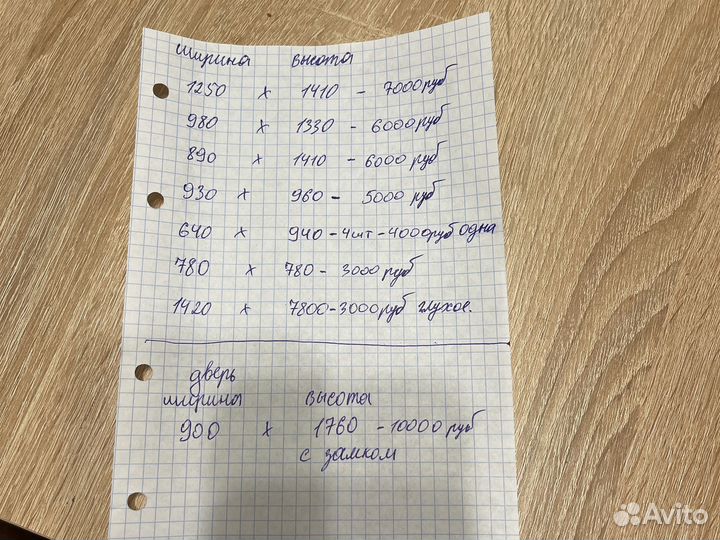 ширина высота
1250 х 1410 - 7000 руб
980 х 1330 - 6000 руб
890 х 1410 - 6000 руб
930 х 960 - 5000 руб
640 х 940 - 4шт - 4000руб одна
780 х 780 - 3000 руб
1420 х 7800 - 3000 руб глухое.
дверь
ширина высота
900 х 1760 - 10000 руб
с замком
Avito